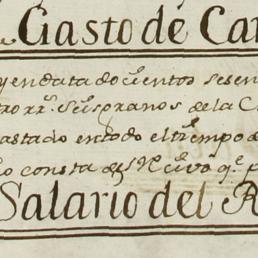 Gasto de Car
y en data docientos sesen
tro rr.s Seuspranos de la C
gastado en todo el tiempo de
consta de Recivo q.e p
Salario del R